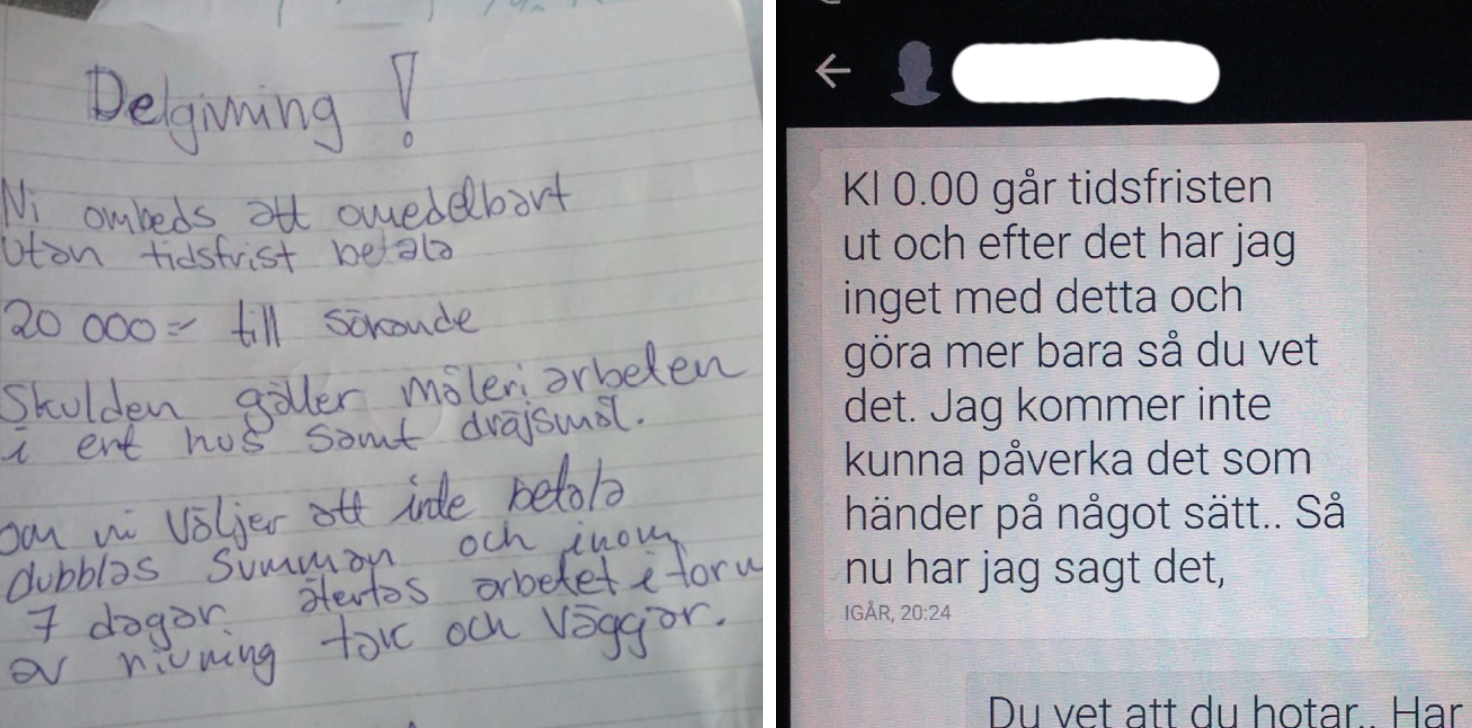 Delgivning !
Ni ombeds att omedelbart
utan tidsfrist betala
20 000:- till sökande
Skulden gäller måleriarbeten
i ert hus samt dräjsmål.
om ni väljer att inte betala
dubblas summan och inom
7 dagar återtas arbetet i form
av rivning tak och väggar.
Kl 0.00 går tidsfristen
ut och efter det har jag
inget med detta och
göra mer bara så du vet
det. Jag kommer inte
kunna påverka det som
händer på något sätt.. Så
nu har jag sagt det,
IGÅR, 20:24
Du vet att du hotar.. Har